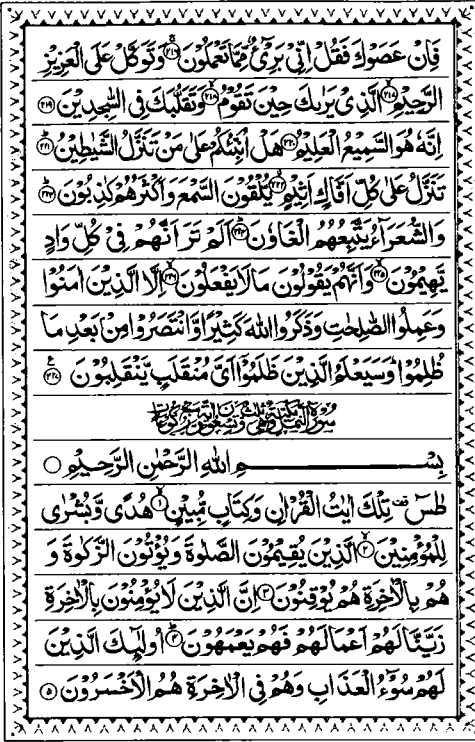 فَاِنْ عَصَوْكَ فَقُلْ اِنِّيْ بَرِيْٓءٌ مِّمَّا تَعْمَلُوْنَ ﴿۲۱۶﴾ وَتَوَكَّلْ عَلَى الْعَزِيْزِ
الرَّحِيْمِ ﴿۲۱۷﴾ الَّذِيْ يَرٰىكَ حِيْنَ تَقُوْمُ ﴿۲۱۸﴾ وَتَقَلُّبَكَ فِي السّٰجِدِيْنَ ﴿۲۱۹﴾
اِنَّهٗ هُوَ السَّمِيْعُ الْعَلِيْمُ ﴿۲۲۰﴾ هَلْ اُنَبِّئُكُمْ عَلٰى مَنْ تَنَزَّلُ الشَّيٰطِيْنُ ﴿۲۲۱﴾
تَنَزَّلُ عَلٰى كُلِّ اَفَّاكٍ اَثِيْمٍ ﴿۲۲۲﴾ يُّلْقُوْنَ السَّمْعَ وَاَكْثَرُهُمْ كٰذِبُوْنَ ﴿۲۲۳﴾
وَالشُّعَرَآءُ يَتَّبِعُهُمُ الْغَاوٗنَ ﴿۲۲۴﴾ اَلَمْ تَرَ اَنَّهُمْ فِيْ كُلِّ وَادٍ
يَّهِيْمُوْنَ ﴿۲۲۵﴾ وَاَنَّهُمْ يَقُوْلُوْنَ مَا لَا يَفْعَلُوْنَ ﴿۲۲۶﴾ اِلَّا الَّذِيْنَ اٰمَنُوْا
وَعَمِلُوا الصّٰلِحٰتِ وَذَكَرُوا اللّٰهَ كَثِيْرًا وَّانْتَصَرُوْا مِنْۢ بَعْدِ مَا
ظُلِمُوْا ؕ وَسَيَعْلَمُ الَّذِيْنَ ظَلَمُوْٓا اَيَّ مُنْقَلَبٍ يَّنْقَلِبُوْنَ ﴿۲۲۷﴾
سُوْرَةُ النَّمْلِ مَكِّيَّةٌ وَّهِيَ ثَلٰثٌ وَّتِسْعُوْنَ اٰيَةً وَّسَبْعُ رُكُوْعَاتٍ
بِسْمِ اللّٰهِ الرَّحْمٰنِ الرَّحِيْمِ
طٰسٓ تِلْكَ اٰيٰتُ الْقُرْاٰنِ وَكِتَابٍ مُّبِيْنٍ ﴿۱﴾ هُدًى وَّبُشْرٰى
لِلْمُؤْمِنِيْنَ ﴿۲﴾ الَّذِيْنَ يُقِيْمُوْنَ الصَّلٰوةَ وَيُؤْتُوْنَ الزَّكٰوةَ وَ
هُمْ بِالْاٰخِرَةِ هُمْ يُوْقِنُوْنَ ﴿۳﴾ اِنَّ الَّذِيْنَ لَا يُؤْمِنُوْنَ بِالْاٰخِرَةِ
زَيَّنَّا لَهُمْ اَعْمَالَهُمْ فَهُمْ يَعْمَهُوْنَ ﴿۴﴾ اُولٰٓئِكَ الَّذِيْنَ
لَهُمْ سُوْٓءُ الْعَذَابِ وَهُمْ فِي الْاٰخِرَةِ هُمُ الْاَخْسَرُوْنَ ﴿۵﴾